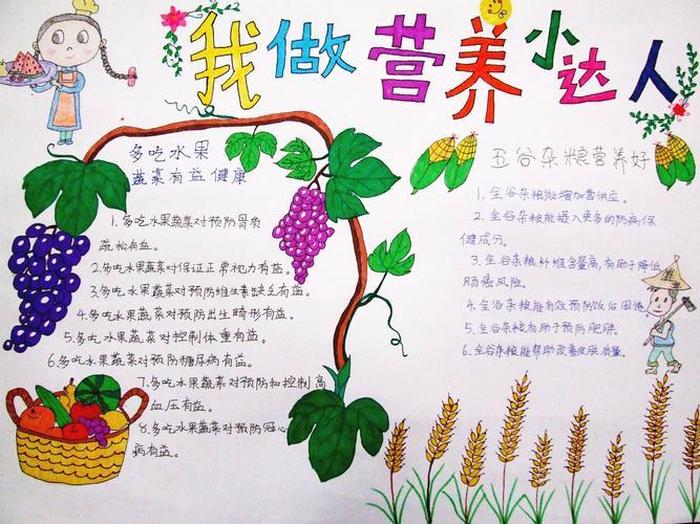 我做营养小达人
多吃水果
蔬菜有益健康
1.多吃水果蔬菜对预防骨质
疏松有益。
2.多吃水果蔬菜对保证正常视力有益。
3.多吃水果蔬菜对预防维生素缺乏有益。
4.多吃水果蔬菜对预防出生畸形有益。
5.多吃水果蔬菜对控制体重有益。
6.多吃水果蔬菜对预防糖尿病有益。
7.多吃水果蔬菜对预防和控制高
血压有益。
8.多吃水果蔬菜对预防冠心
病有益。
五谷杂粮营养好
1.全谷杂粮能增加营供应。
2.全谷杂粮能摄入更多的防病保
健成分。
3.全谷杂粮纤维含量高,有助于降低
肠癌风险。
4.全谷杂粮能有效预防饭后困倦
5.全谷杂粮有助于预防肥胖。
6.全谷杂粮能帮助改善皮肤质量。